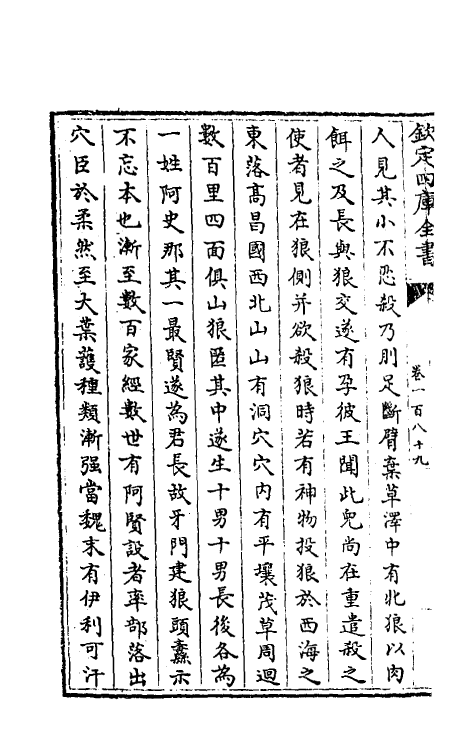 欽定四庫全書
卷一百八十九
人見其小不忍殺乃刖足斷臂棄草澤中有牝狼以肉
餌之及長與狼交遂有孕彼王聞此兒尚在重遣殺之
使者見在狼側并欲殺狼時若有神物投狼於西海之
東落髙昌國西北山山有洞穴穴内有平壤茂草周迴
數百里四面俱山狼匿其中遂生十男十男長後各為
一姓阿史那其一最賢遂為君長故牙門建狼頭纛示
不忘本也漸至數百家經數世有阿賢設者率部落出
穴臣於柔然至大葉護種類漸强當魏末有伊利可汗